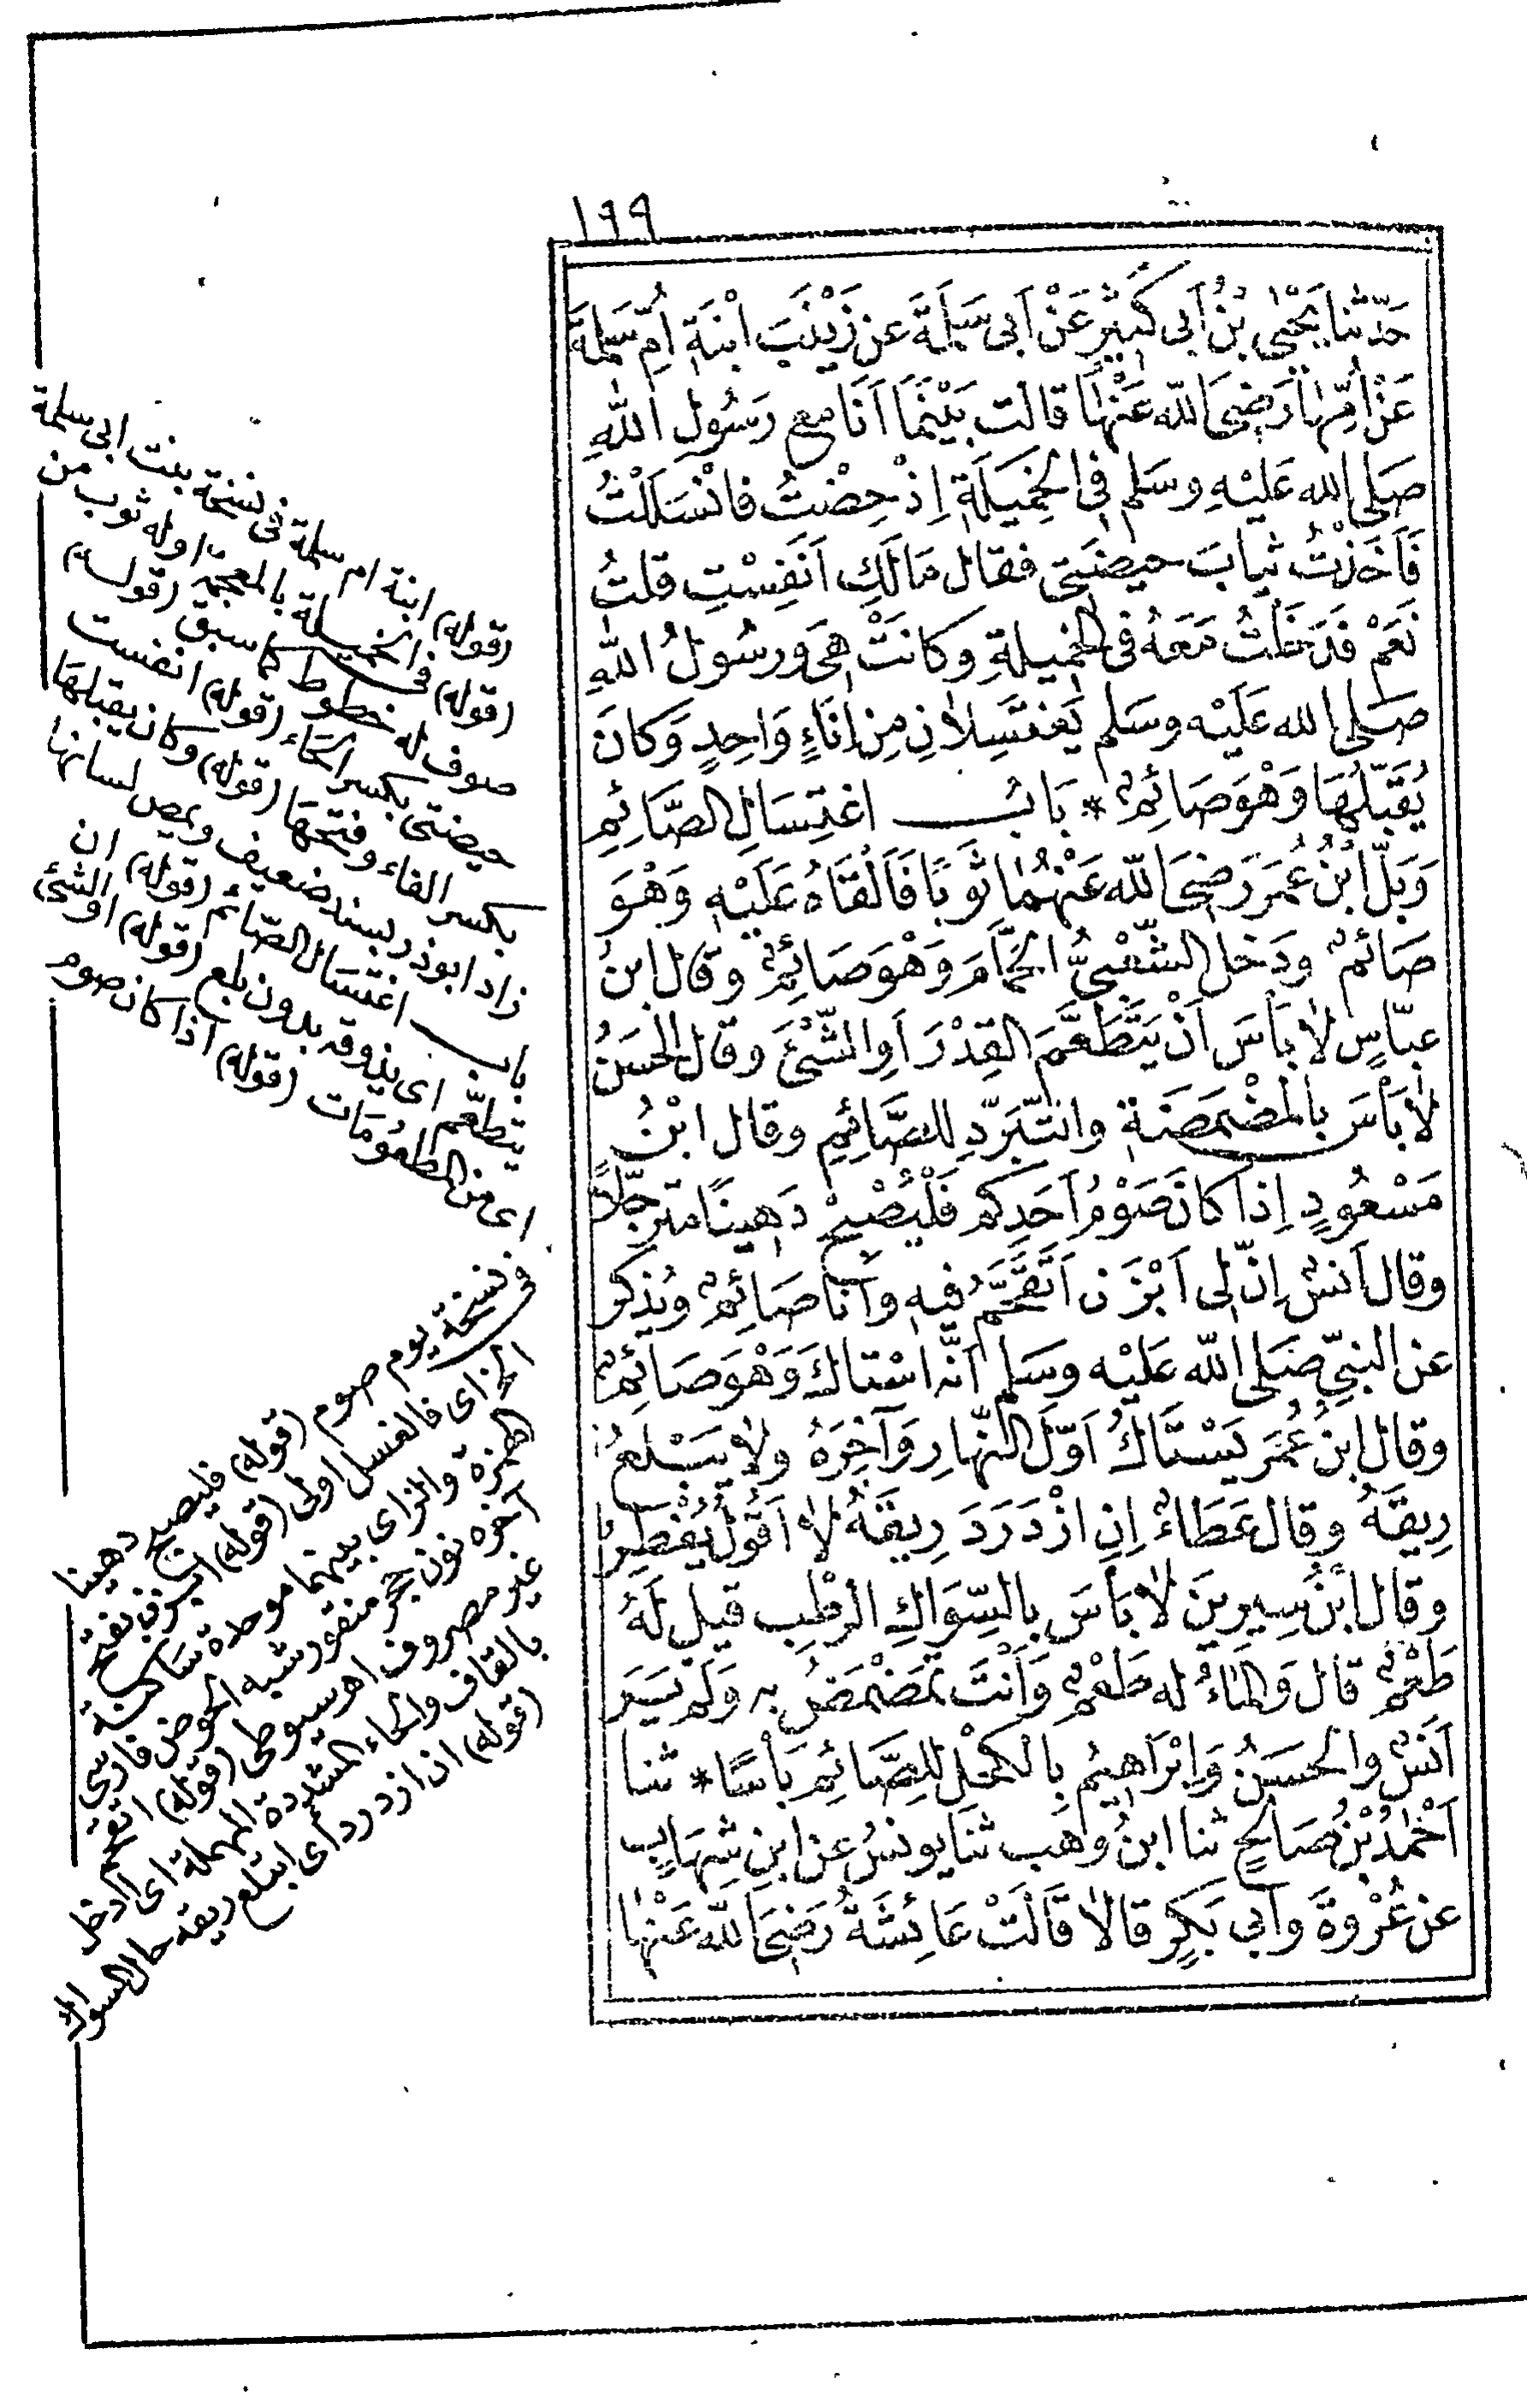 ١٩٩
حَدّثنا يَحْيَى بْنُ اَبى كَثِيْرٍ عَنْ اَبى سَلَمَةَ عن زَيْنَبَ ابْنَةِ اُمِّ سَلمَةَ
عَنْ اُمِّهَا رَضِىَ الله عَنْهَا قالت بَيْنَمَا اَنَا مع رَسُولِ اللهِ
صَلى الله عَليْهِ وسَلم فِى الخَمِيلَةِ اِذْ حِضْتُ فانْسَلَلْتُ
فَاَخَذْتُ ثِيابَ حيضَتى فقال مَالَكِ اَنَفِسْتِ قلتُ
نَعَمْ فَدَخَلتُ مَعَهُ فى الخَمِيلةِ وكانَتْ هِىَ ورسُولُ اللهِ
صَلى الله عَلَيْه وسَلم يَغتَسِلانِ مِن اِنَاءٍ وَاحِدٍ وَكانَ
يُقَبّلُهَا وَهْوَ صَائِمٌ * بَابُ اغتِسَالِ الصَّائِمِ
وَبَلَّ ابْنُ عُمَرَ رَضِىَ الله عَنْهُمَا ثَوْبًا فَاَلْقَاهُ عَلَيْهِ وَهْوَ
صَائمٌ ودَخل الشَّعْبِىُّ الحَمَّامَ وَهْوَ صَائِمٌ وقال ابنُ
عبّاسٍ لا بَاَسَ اَنْ يَتَطَعَّمَ القِدْرَ اَوِ الشّئَ وقال الحَسَنُ
لا بَأسَ بالمَضْمَضَةِ والتّبَرّدِ للصَّائِمِ وقال ابْنُ
مَسْعُودٍ اِذا كانَ صَوْمُ اَحَدِكم فَلْيُصْبِحْ دَهِينًا مترَجّلاً
وقال اَنسٌ اِنّ لِى اَبْزَن اَتَقَحَّمُ فيهِ وَاَنا صَائِمٌ ويُذكر
عن النبىِّ صَلى الله عَليْه وسَلم اَنَّه اسْتاكَ وَهْوَ صَائِمٌ
وقال ابنُ عُمَرَ يَسْتَاكُ اَوّلَ النّهارِ وَآخِرَهُ ولا يَبْلعُ
رِيقَهُ وقال عَطَاءٌ اِنِ ازْدَرَدَ رِيقَهُ لا اَقُولُ يُفْطِرُ
وقال ابْنُ سِيرِينَ لا بَاَسَ بِالسِّوَاكِ الرطْبِ قيل لَهُ
طَعْمٌ قال وَالمَاءُ له طَعْمٌ وَاَنْتَ تمَضْمَضُ به وَلَم يَرَ
اَنَسٌ والحَسَنُ وَاِبْرَاهِيْمُ بِالكحْلِ للصَّائِمِ بَأسًا * ثنا
اَحْمَدُ بْنُ صَالحٍ ثنا ابنُ وَهْب ثَنَا يونسُ عن ابنِ شِهَابٍ
عن عُرْوةَ وأَبى بَكرٍ قالا قَالَتْ عَائشَةُ رَضِىَ الله عَنْهَا
(قوله) ابنة ام سلمة فى نسخة بنت ابى سلمة
(قوله) فى الخميلة بالمعجمة اوله ثوب من
صوف له خطوط كما سبق (قوله)
حيضتى بكسر الحاء (قوله) انفست
بكسر الفاء وفتحها (قوله) وكان يقبلها
زاد ابو ذر بسند ضعيف ويمص لسانها
باب اغتسال الصّائم (قوله) ان
يتطعّم اى يذوقه بدون بلع (قوله) او الشئ
اى من المطعُومَات (قوله) اذا كان صوم
فى نسخة يوم صوم (قوله) فليصبح دهينا
الخ اى فالغسل اولى (قوله) ابزن بفتح
الهمزة والزاى بينهما موحدة ساكنة
آخره نون حجر منقور شبه الحوض فارسى
غير مصروف اهـ سيوطى (قوله) اتقحم
بالقاف والحاء المشددة المهملة اى ادخل
(قوله) ان ازدرد اى ابتلع ريقه حال السواك